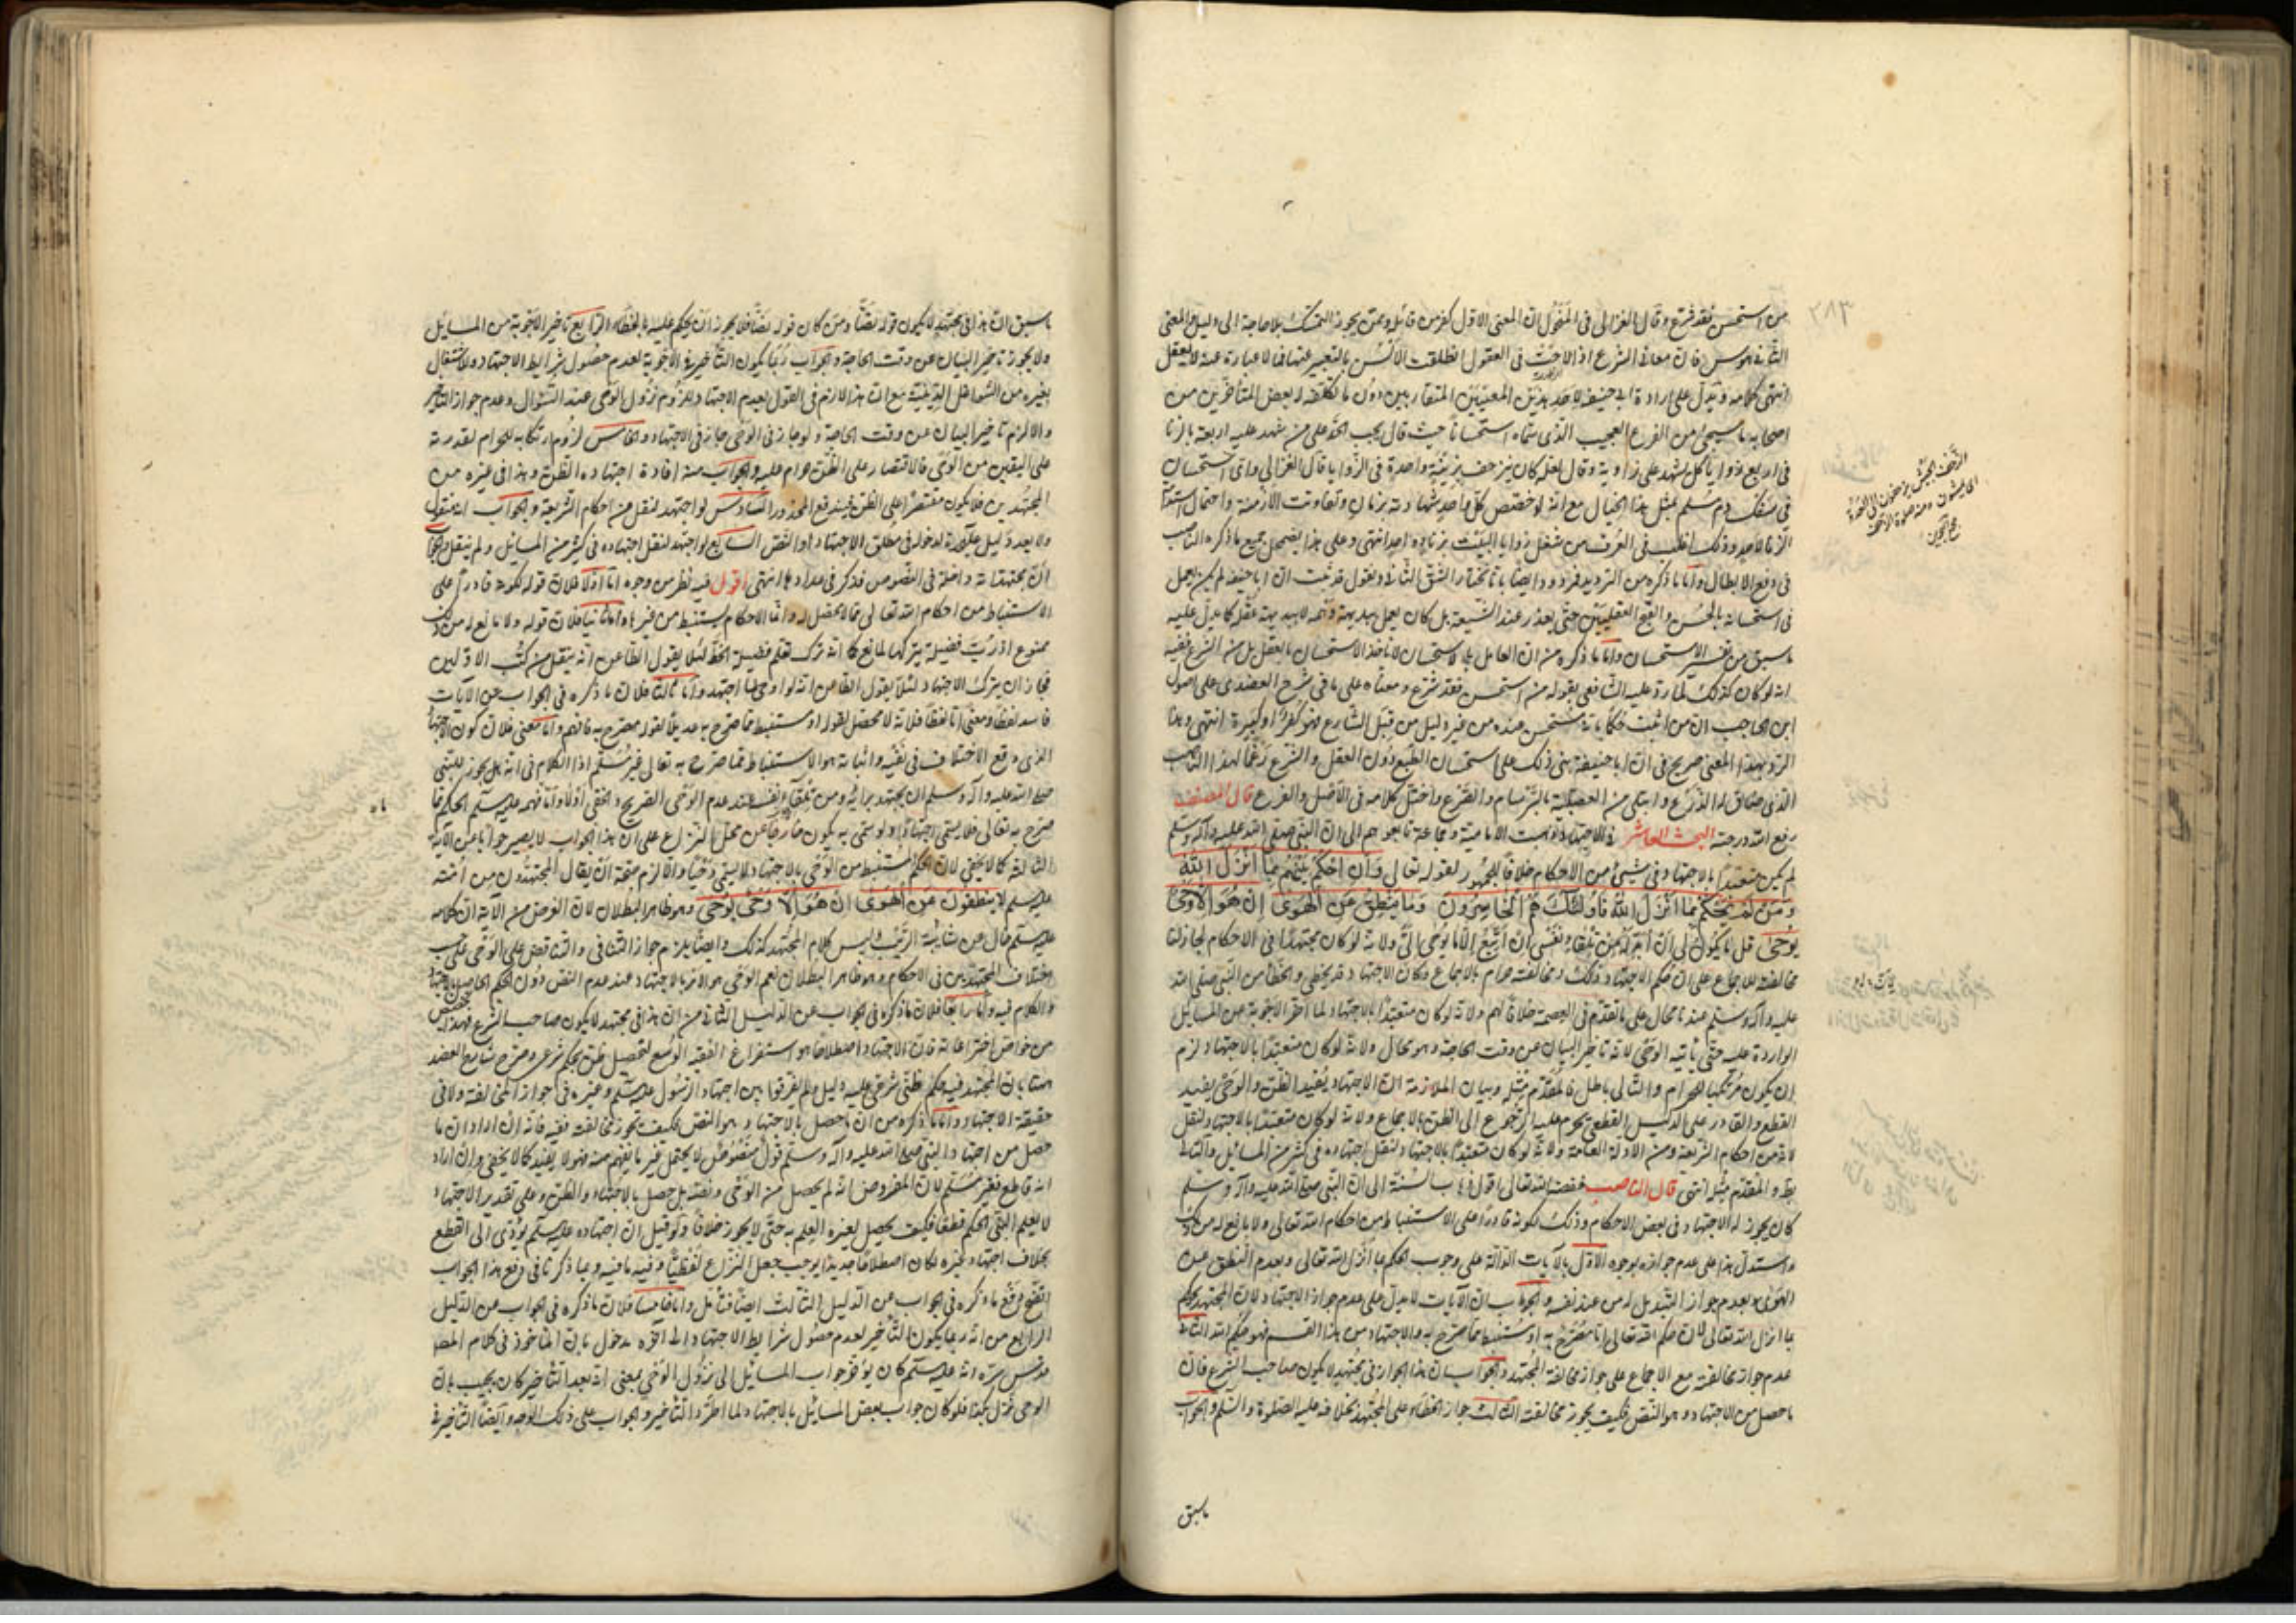 من استحسن فقد شرع وقال الغزالي في المنخول ان المعنى الاول كفر من قائله وممن يجوز التمسك به لا حاجة الى دليل والمعنى
الثاني هوس فان معاني الشرع اذا لاحت في العقول انطلقت الالسن بالتعبير عنها فما لا عبارة عنه لا يعقل
انتهى كلامه ويدل على ارادة ابي حنيفة لاحد هذين المعنيين المتقاربين دون ما تكلفه له بعض المتأخرين من
اصحابه ما سيجئ من الفرع العجيب الذي سماه استحسانا حيث قال يجب الحد على من شهد عليه اربعة بالزنا
في اربع زوايا كل يشهد على زاوية وقال لعله كان يزحف بزنية واحدة في الزوايا قال الغزالي واي استحسان
في سفك دم مسلم بمثل هذا الخيال مع انه لو خصص كل واحد شهادته بزمان وتفاوتت الازمنة واحتمل استدامة
الزنا لاحد وذلك اغلب في العرف من شغل زوايا البيت بزناء واحد انتهى وعلى هذا يضمحل جميع ما ذكره الناصب
في دفع الابطال واما ما ذكره من الترديد فمردود ايضا بانا نختار الشق الثاني ونقول قد ثبت ان ابا حنيفة لم يكن يعمل
في استحسانه بالحسن والقبح العقليين حتى يعذر عند الشيعة بل كان يعمل ببديهة وهمه لا ببديهة عقله كما يدل عليه
ما سبق من تفسير الاستحسان واما ما ذكره من ان العامل بالاستحسان لا ياخذ الاستحسان بالعقل بل من الشرع ففيه
انه لو كان كذلك لما رد عليه الشافعي بقوله من استحسن فقد شرع ومعناه على ما في شرح العضدي على اصول
ابن الحاجب ان من اثبت حكما بانه مستحسن عنده من غير دليل من قبل الشارع فهو كفر او كبيرة انتهى وهذا
الرد بهذا المعنى صريح في ان ابا حنيفة بنى ذلك على استحسان الطبع دون العقل والشرع رغما لهذا الناصب
الذي ضاق له الذرع وابتلي من العصبية بالبرسام والصرع واختل كلامه في الاصل والفرع قال المصنف
رفع الله درجته البحث العاشر في الاجتهاد ذهبت الامامية وجماعة تابعوهم الى ان النبي صلى الله عليه وآله وسلم
لم يكن متعبدا بالاجتهاد في شئ من الاحكام خلافا للجمهور لقوله تعالى وان احكم بينهم بما انزل الله
ومن لم يحكم بما انزل الله فاولئك هم الخاسرون وما ينطق عن الهوى ان هو الا وحي
يوحى قل ما يكون لي ان ابدله من تلقاء نفسي ان اتبع الا ما يوحى الي ولانه لو كان مجتهدا في الاحكام لجاز لنا
مخالفته للاجماع على ان حكم الاجتهاد ذلك ومخالفته حرام بالاجماع وكان الاجتهاد قد يخطي والخطأ من النبي صلى الله
عليه وآله وسلم عندنا محال على ما تقدم في العصمة خلافا لهم ولانه لو كان متعبدا بالاجتهاد لما اخر الاجوبة عن المسايل
الواردة عليه حتى يأتيه الوحي لانه تاخير البيان عن وقت الحاجة وهو محال ولانه لو كان متعبدا بالاجتهاد لزم
ان يكون مرتكبا للحرام والتالي باطل فالمقدم مثله وبيان الملازمة ان الاجتهاد يفيد الظن والوحي يفيد
القطع والقادر على الدليل القطعي يحرم عليه الرجوع الى الظن بالاجماع ولانه لو كان متعبدا بالاجتهاد لنقل
لانه من احكام الشريعة ومن الادلة العامة ولانه لو كان متعبدا بالاجتهاد لنقل اجتهاده في كثير من المسائل والتالي
بط والمقدم مثله انتهى قال الناصب خفضه الله تعالى اقول ذهب السنة الى ان النبي صلى الله عليه وآله وسلم
كان يجوز له الاجتهاد في بعض الاحكام وذلك لكونه قادرا على الاستنباط من احكام الله تعالى ولا مانع له من ذلك
واستدل هذا على عدم جوازه بوجوه الاول بالآيات الدالة على وجوب الحكم بما انزل الله تعالى وبعدم النطق عن
الهوى وبعدم جواز التبديل له من عند نفسه والجواب ان الآيات لا يدل على عدم جواز الاجتهاد لان المجتهد يحكم
بما انزل الله تعالى لان حكم الله تعالى اما مصرح به او مستنبط مما صرح به والاجتهاد من هذا القسم فهو حكم الله الثاني
عدم جواز مخالفته مع الاجماع على جواز مخالفة المجتهد والجواب ان هذا الجواز في مجتهد لا يكون صاحب الشرع فان
ما حصل من الاجتهاد وهو النص فكيف يجوز مخالفته الثالث جواز الخطاء على المجتهد بخلافه عليه الصلوة والسلم والجواب
ما سبق
ما سبق ان هذا في مجتهد لا يكون قوله نصا ومن كان قوله نصا فلا يجوز ان يحكم عليه بالخطاء الرابع تاخير الاجوبة من المسايل
ولا يجوز تاخير البيان عن وقت الحاجة والجواب ربما يكون التأخير في الاجوبة لعدم حصول شرايط الاجتهاد والاشتغال
بغيره من الشواغل الدينية مع ان هذا لازم في القول بعدم الاجتهاد للزوم نزول الوحي عند السؤال وعدم جواز التأخير
والا لزم تاخير البيان عن وقت الحاجة ولو جاز في الوحي جاز في الاجتهاد والخامس لزوم ارتكابه للحرام لقدرته
على اليقين من الوحي فالاقتصار على الظن حرام عليه والجواب منع افادة اجتهاده الظن وهذا في غيره من
المجتهدين فلا يكون مقتصرا على الظن فيندفع المحذور السادس لو اجتهد لنقل من احكام الشريعة والجواب انه منقول
ولا يعد دليل عليحدة لدخوله في مطلق الاجتهاد او النص السابع لو اجتهد لنقل اجتهاده في كثير من المسائل ولم ينقل والجواب
ان مجتهداته داخلة في النصوص فذكر في عدادها انتهى اقول فيه نظر من وجوه اما اولا فلان قوله لكونه قادرا على
الاستنباط من احكام الله تعالى مما لا محصل له وانما الاحكام يستنبط من غيرها واما ثانيا فلان قوله ولا مانع له من ذلك
ممنوع اذ رب فضيلة يتركها لمانع كما انه ترك تعلم فضيلة الخط لئلا يقول الطاعن انه ينقل من كتب الاولين
فجاز ان يترك الاجتهاد لئلا يقول الطاعن انه لو اوحي لما اجتهد واما ثالثا فلان ما ذكره في الجواب عن الآيات
فاسد لفظا ومعنى اما لفظا فلانه لا محصل لقوله او مستنبط مما صرح به عديلا لقوله مصرح به فافهم واما معنى فلان كون الاجتهاد
الذي وقع الاختلاف في نفيه واثباته هو الاستنباط مما صرح به تعالى غير مسلم اذ الكلام في انه هل يجوز للنبي
صلى الله عليه وآله وسلم ان يجتهد برائه ومن تلقاء نفسه عند عدم الوحي الصريح والخفي اولا واما فهمه عليه سلم الحكم مما
صرح به تعالى فلا يسمى اجتهادا ولو سمي به يكون خارجا عن محل النزاع على ان هذا الجواب لا يصير جوابا عن الآية
الثالثة كما لا يخفى لان الحكم المستنبط من الوحي بالاجتهاد لا يسمى وحيا والا لزم صحة ان يقال المجتهدون من امته
عليه سلم لا ينطقون عن الهوى ان هو الا وحي يوحى وهو ظاهر البطلان لان الغرض من الآية ان كلامه
عليه سلم خال عن شائبة الريب وليس كلام المجتهد كذلك وايضا يلزم جواز التنافي والتناقض على الوحي على حسب
اختلاف المجتهدين في الاحكام وهو ظاهر البطلان نعم الوحي هو الامر بالاجتهاد عند عدم النص دون الحكم الحاصل بالاجتهاد
والكلام فيه واما رابعا فلان ما ذكره في الجواب عن الدليل الثاني من ان هذا في مجتهد لا يكون صاحب الشرع فهذا تخصيص
من خواص اختراعاته فان الاجتهاد اصطلاحا هو استفراغ الفقيه الوسع لتحصيل ظن بحكم شرعي وصرح شارح العضد
هنا بان المجتهد فيه حكم ظني شرعي عليه دليل ولم يفرقوا بين اجتهاد الرسول عليه سلم وغيره في جواز المخالفة ولا في
حقيقة الاجتهاد واما ما ذكره من ان ما حصل بالاجتهاد وهو النص فكيف تجوز مخالفته ففيه فانه ان اراد ان ما
حصل من اجتهاد النبي صلى الله عليه وآله وسلم قول منصوص لا يحتمل غير ما يفهم منه فهو لا يفيد كما لا يخفى وان اراد
انه قاطع فغير مسلم لان المفروض انه لم يحصل من الوحي ونصه بل حصل بالاجتهاد والظن وعلى تقدير الاجتهاد
لا يعلم النبي الحكم قطعا فكيف يحصل لغيره العلم به حتى لا يجوز خلافه ولو قيل ان اجتهاده عليه سلم يؤدي الى القطع
بخلاف اجتهاد غيره لكان اصطلاحا جديدا يوجب جعل النزاع لفظيا وفيه ما فيه وبما ذكرنا في دفع هذا الجواب
اتضح دفع ما ذكره في الجواب عن الدليل الثالث ايضا فتأمل واما خامسا فلان ما ذكره في الجواب عن الدليل
الرابع من انه ربما يكون التأخير لعدم حصول شرايط الاجتهاد الى آخره مدخول بان المأخوذ في كلام المصنف
قدس سره انه عليه سلم كان يؤخر جواب المسائل الى نزول الوحي بمعنى انه بعد التأخير كان يجيب بان
الوحي نزل بكذا فلو كان جوابا لبعض المسائل بالاجتهاد لما اطرد التأخير والجواب على ذلك الوجه وايضا التأخير في